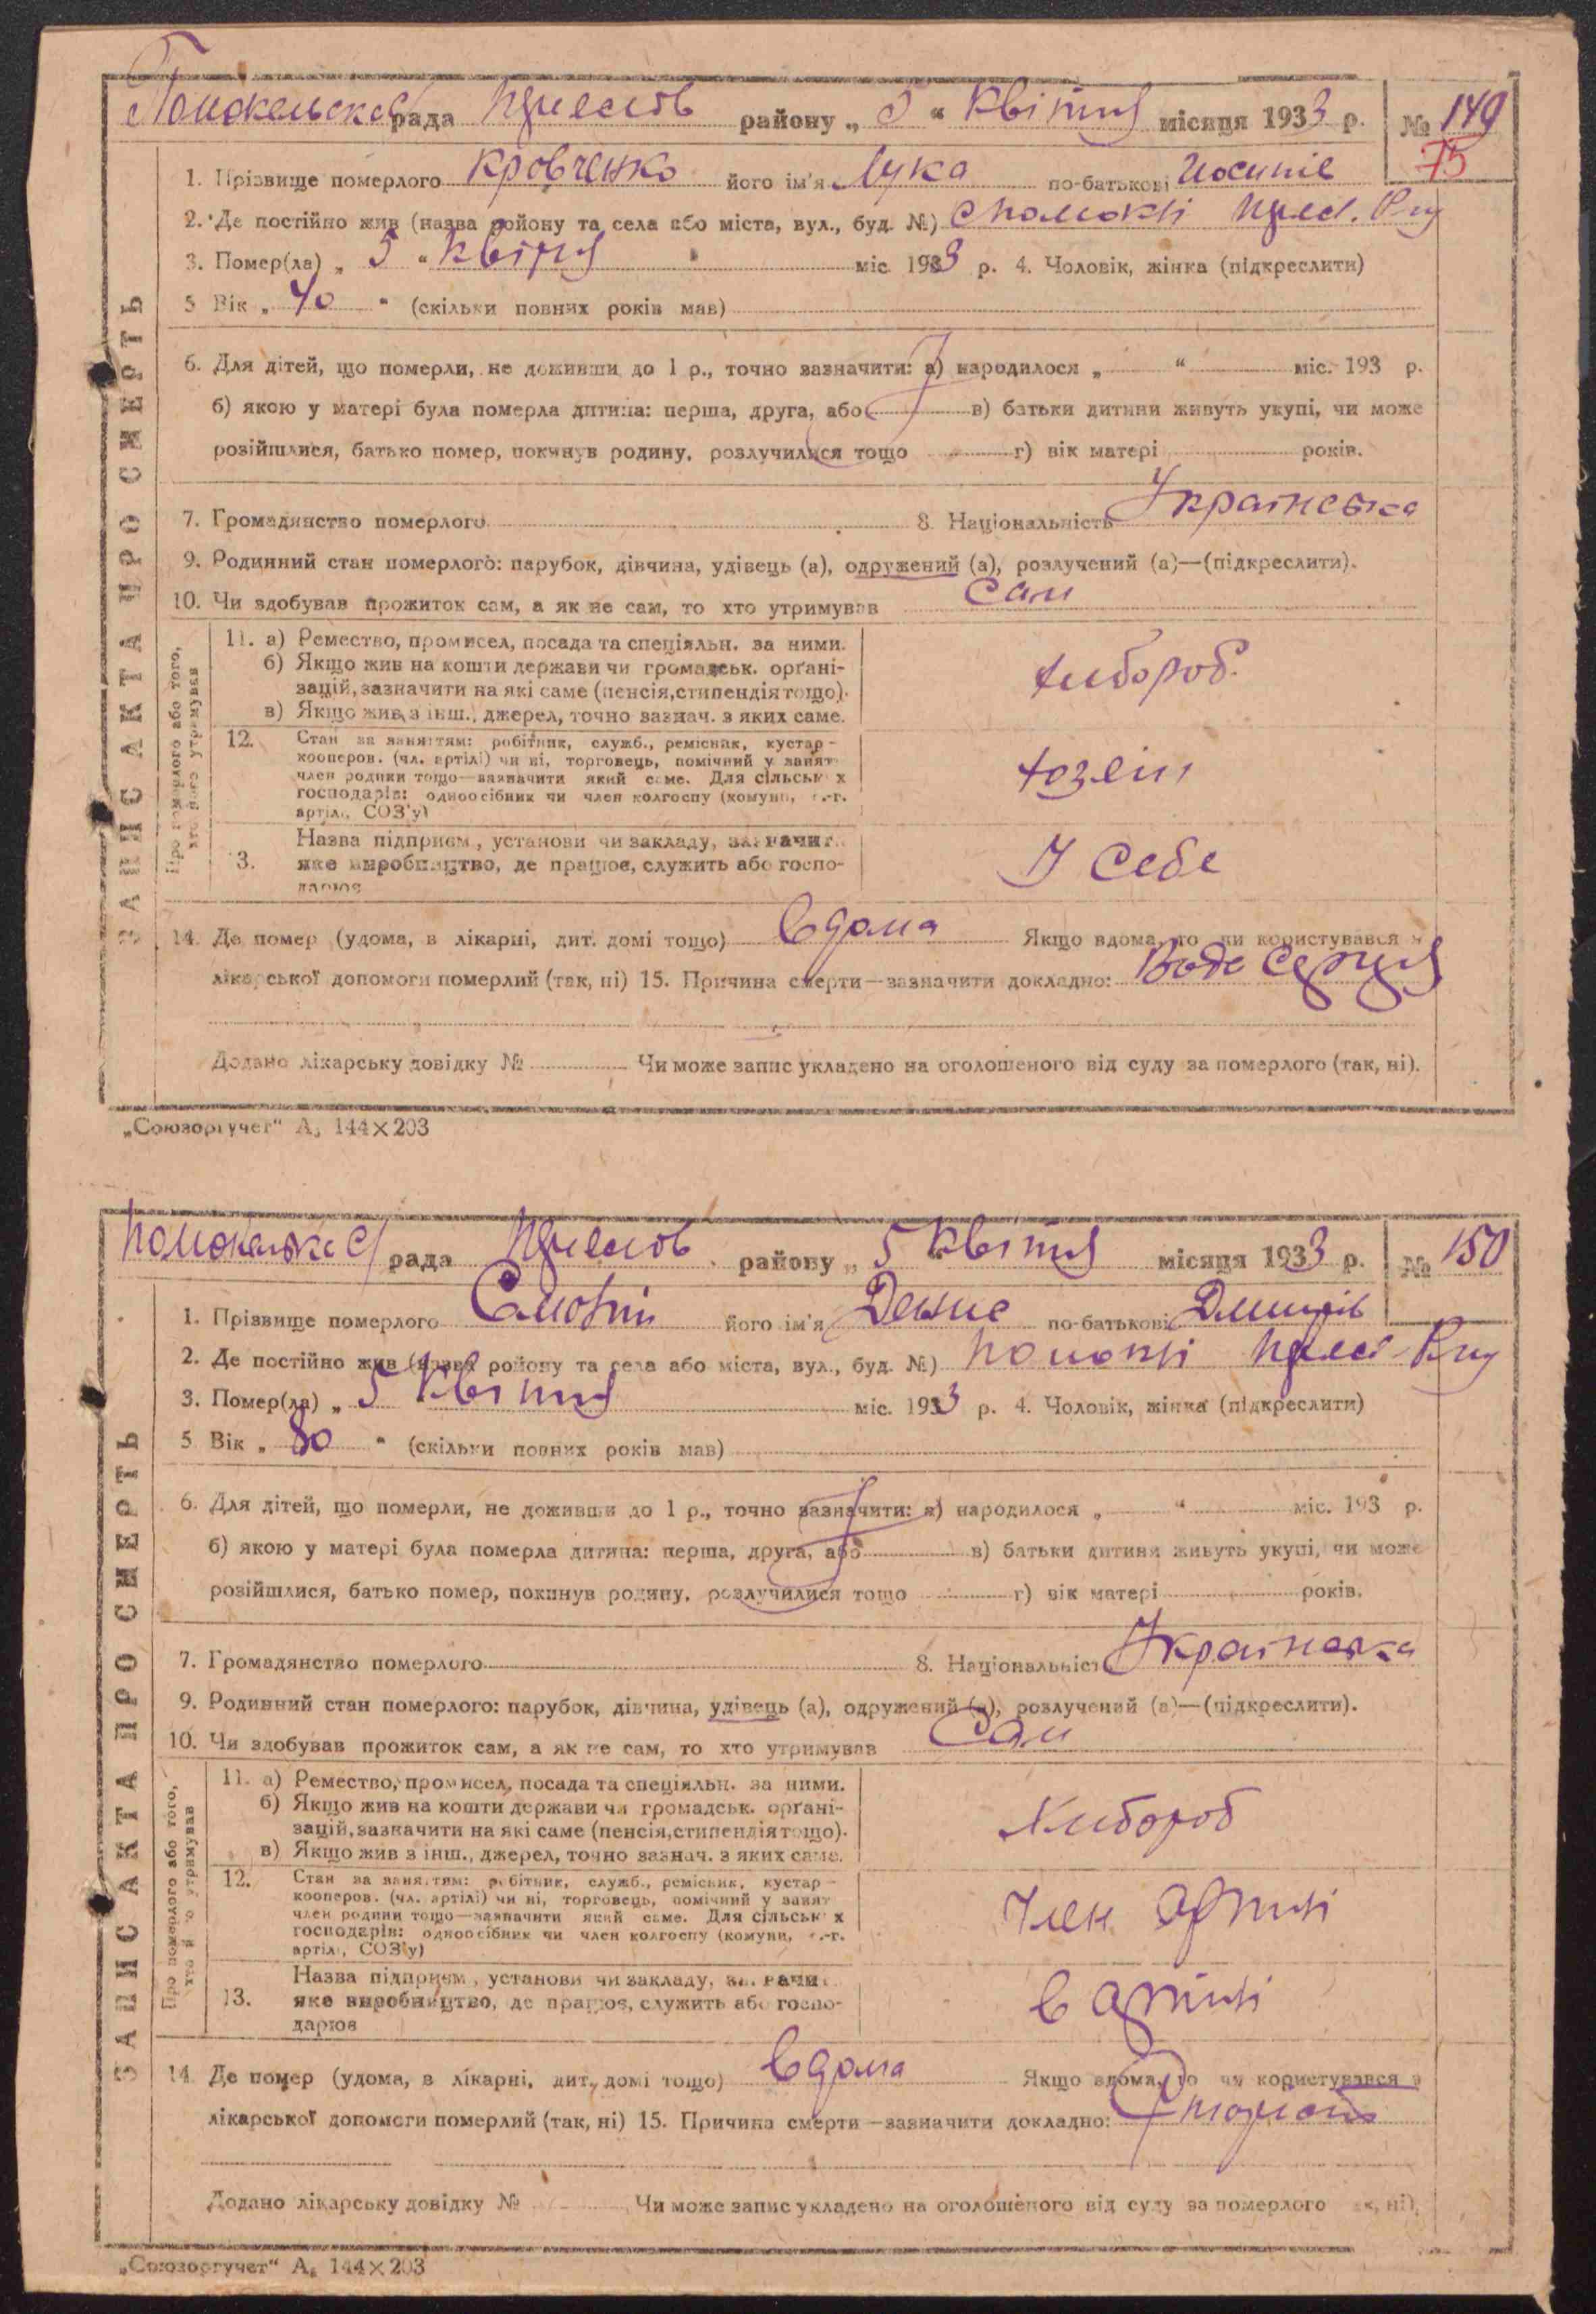 рада району „ 5 “ Квітня місяця 1933 р. № 149
75
1. Прізвище померлого Кровченко його ім'я Лука по-батькові Йосипів
2. Де постійно жив (назва району та села або міста, вул., буд. №)
3. Помер(ла) „ 5 “ Квітня міс. 1933 р. 4. Чоловік, жінка (підкреслити)
5 Вік „ 40 “ (скільки повних років мав)
6. Для дітей, що померли, не доживши до 1 р., точно зазначити: а) народилося „ “ міс. 193 р.
б) якою у матері була померла дитина: перша, друга, або в) батьки дитини живуть укупі, чи може
розійшлися, батько помер, покинув родину, розлучилися тощо г) вік матері років.
7. Громадянство померлого 8. Національність Українська
9. Родинний стан померлого: парубок, дівчина, удівець (а), одружений (а), розлучений (а)—(підкреслити).
10. Чи здобував прожиток сам, а як не сам, то хто утримував Сам
ЗАПИС АКТА ПРО СМЕРТЬ
Про померлого або того, хто його утримував
11. а) Ремество, промисел, посада та спеціяльн. за ними.
б) Якщо жив на кошти держави чи громадськ. орґані-
зацій, зазначити на які саме (пенсія, стипендія тощо).
в) Якщо жив з інш., джерел, точно зазнач. з яких саме.
хибороб.
12. Стан за заняттям: робітник, служб., ремісник, кустар-
кооперов. (чл. артілі) чи ні, торговець, помічний у занят
член родини тощо—зазначити який саме. Для сільськ х
господарів: одноосібник чи член колгоспу (комуни, с.-г.
артіл., СОЗ'у)
хозеін
Назва підприєм., установи чи закладу, зазначит
13. яке виробництво, де працює, служить або госпо-
дарює
У себе
14. Де помер (удома, в лікарні, дит. домі тощо) Вдома Якщо вдома, то чи користувався з
лікарської допомоги померлий (так, ні) 15. Причина смерти—зазначити докладно: Серця
Додано лікарську довідку № Чи може запис укладено на оголошеного від суду за померлого (так, ні).
„Союзоргучет“ А5 144×203
рада району „ 5 “ Квітня місяця 1933 р. № 150
1. Прізвище померлого його ім'я Денис по-батькові Дмитрів
2. Де постійно жив (назва району та села або міста, вул., буд. №)
3. Помер(ла) „ 5 “ Квітня міс. 1933 р. 4. Чоловік, жінка (підкреслити)
5 Вік „ 80 “ (скільки повних років мав)
6. Для дітей, що померли, не доживши до 1 р., точно зазначити: а) народилося „ “ міс. 193 р.
б) якою у матері була померла дитина: перша, друга, або в) батьки дитини живуть укупі, чи може
розійшлися, батько помер, покинув родину, розлучилися тощо г) вік матері років.
7. Громадянство померлого 8. Національніст Українська
9. Родинний стан померлого: парубок, дівчина, удівець (а), одружений (а), розлучений (а)—(підкреслити).
10. Чи здобував прожиток сам, а як не сам, то хто утримував Сам
ЗАПИС АКТА ПРО СМЕРТЬ
Про померлого або того, хто й о утримував
11. а) Ремество, промисел, посада та спеціяльн. за ними.
б) Якщо жив на кошти держави чи громадськ. орґані-
зацій, зазначити на які саме (пенсія, стипендія тощо).
в) Якщо жив з інш., джерел, точно зазнач. з яких саме.
Хибороб
12. Стан за заняттям: робітник, служб., ремісник, кустар-
кооперов. (чл. артілі) чи ні, торговець, помічний у занят
член родини тощо—зазначити який саме. Для сільськ х
господарів: одноосібник чи член колгоспу (комуни, с.-г.
артіл., СОЗ'у)
Член артілі
Назва підприєм., установи чи закладу, зазначит
13. яке виробництво, де працює, служить або госпо-
дарює
В артілі
14. Де помер (удома, в лікарні, дит. домі тощо) Вдома Якщо вдома, то чи користувався з
лікарської допомоги померлий (так, ні) 15. Причина смерти—зазначити докладно:
Додано лікарську довідку № Чи може запис укладено на оголошеного від суду за померлого к, ні).
„Союзоргучет“ А5 144×203